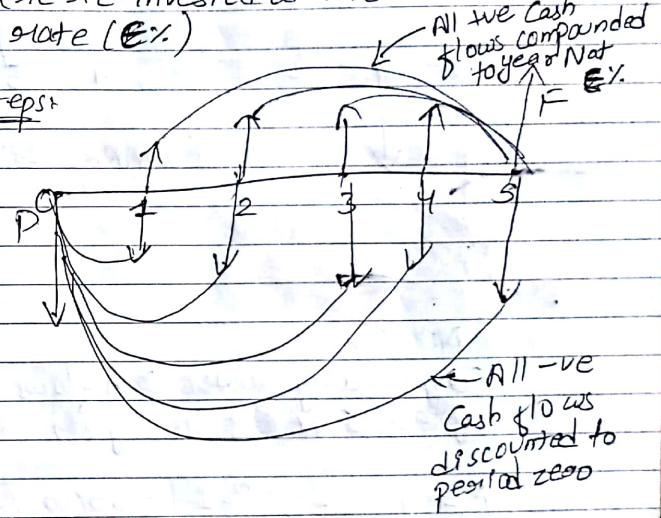 rate (E%)
eps:
All +ve Cash
flows compounded
to year N at
E%
F
P
0
1 2 3 4 5
All -ve
Cash flows
discounted to
period zero